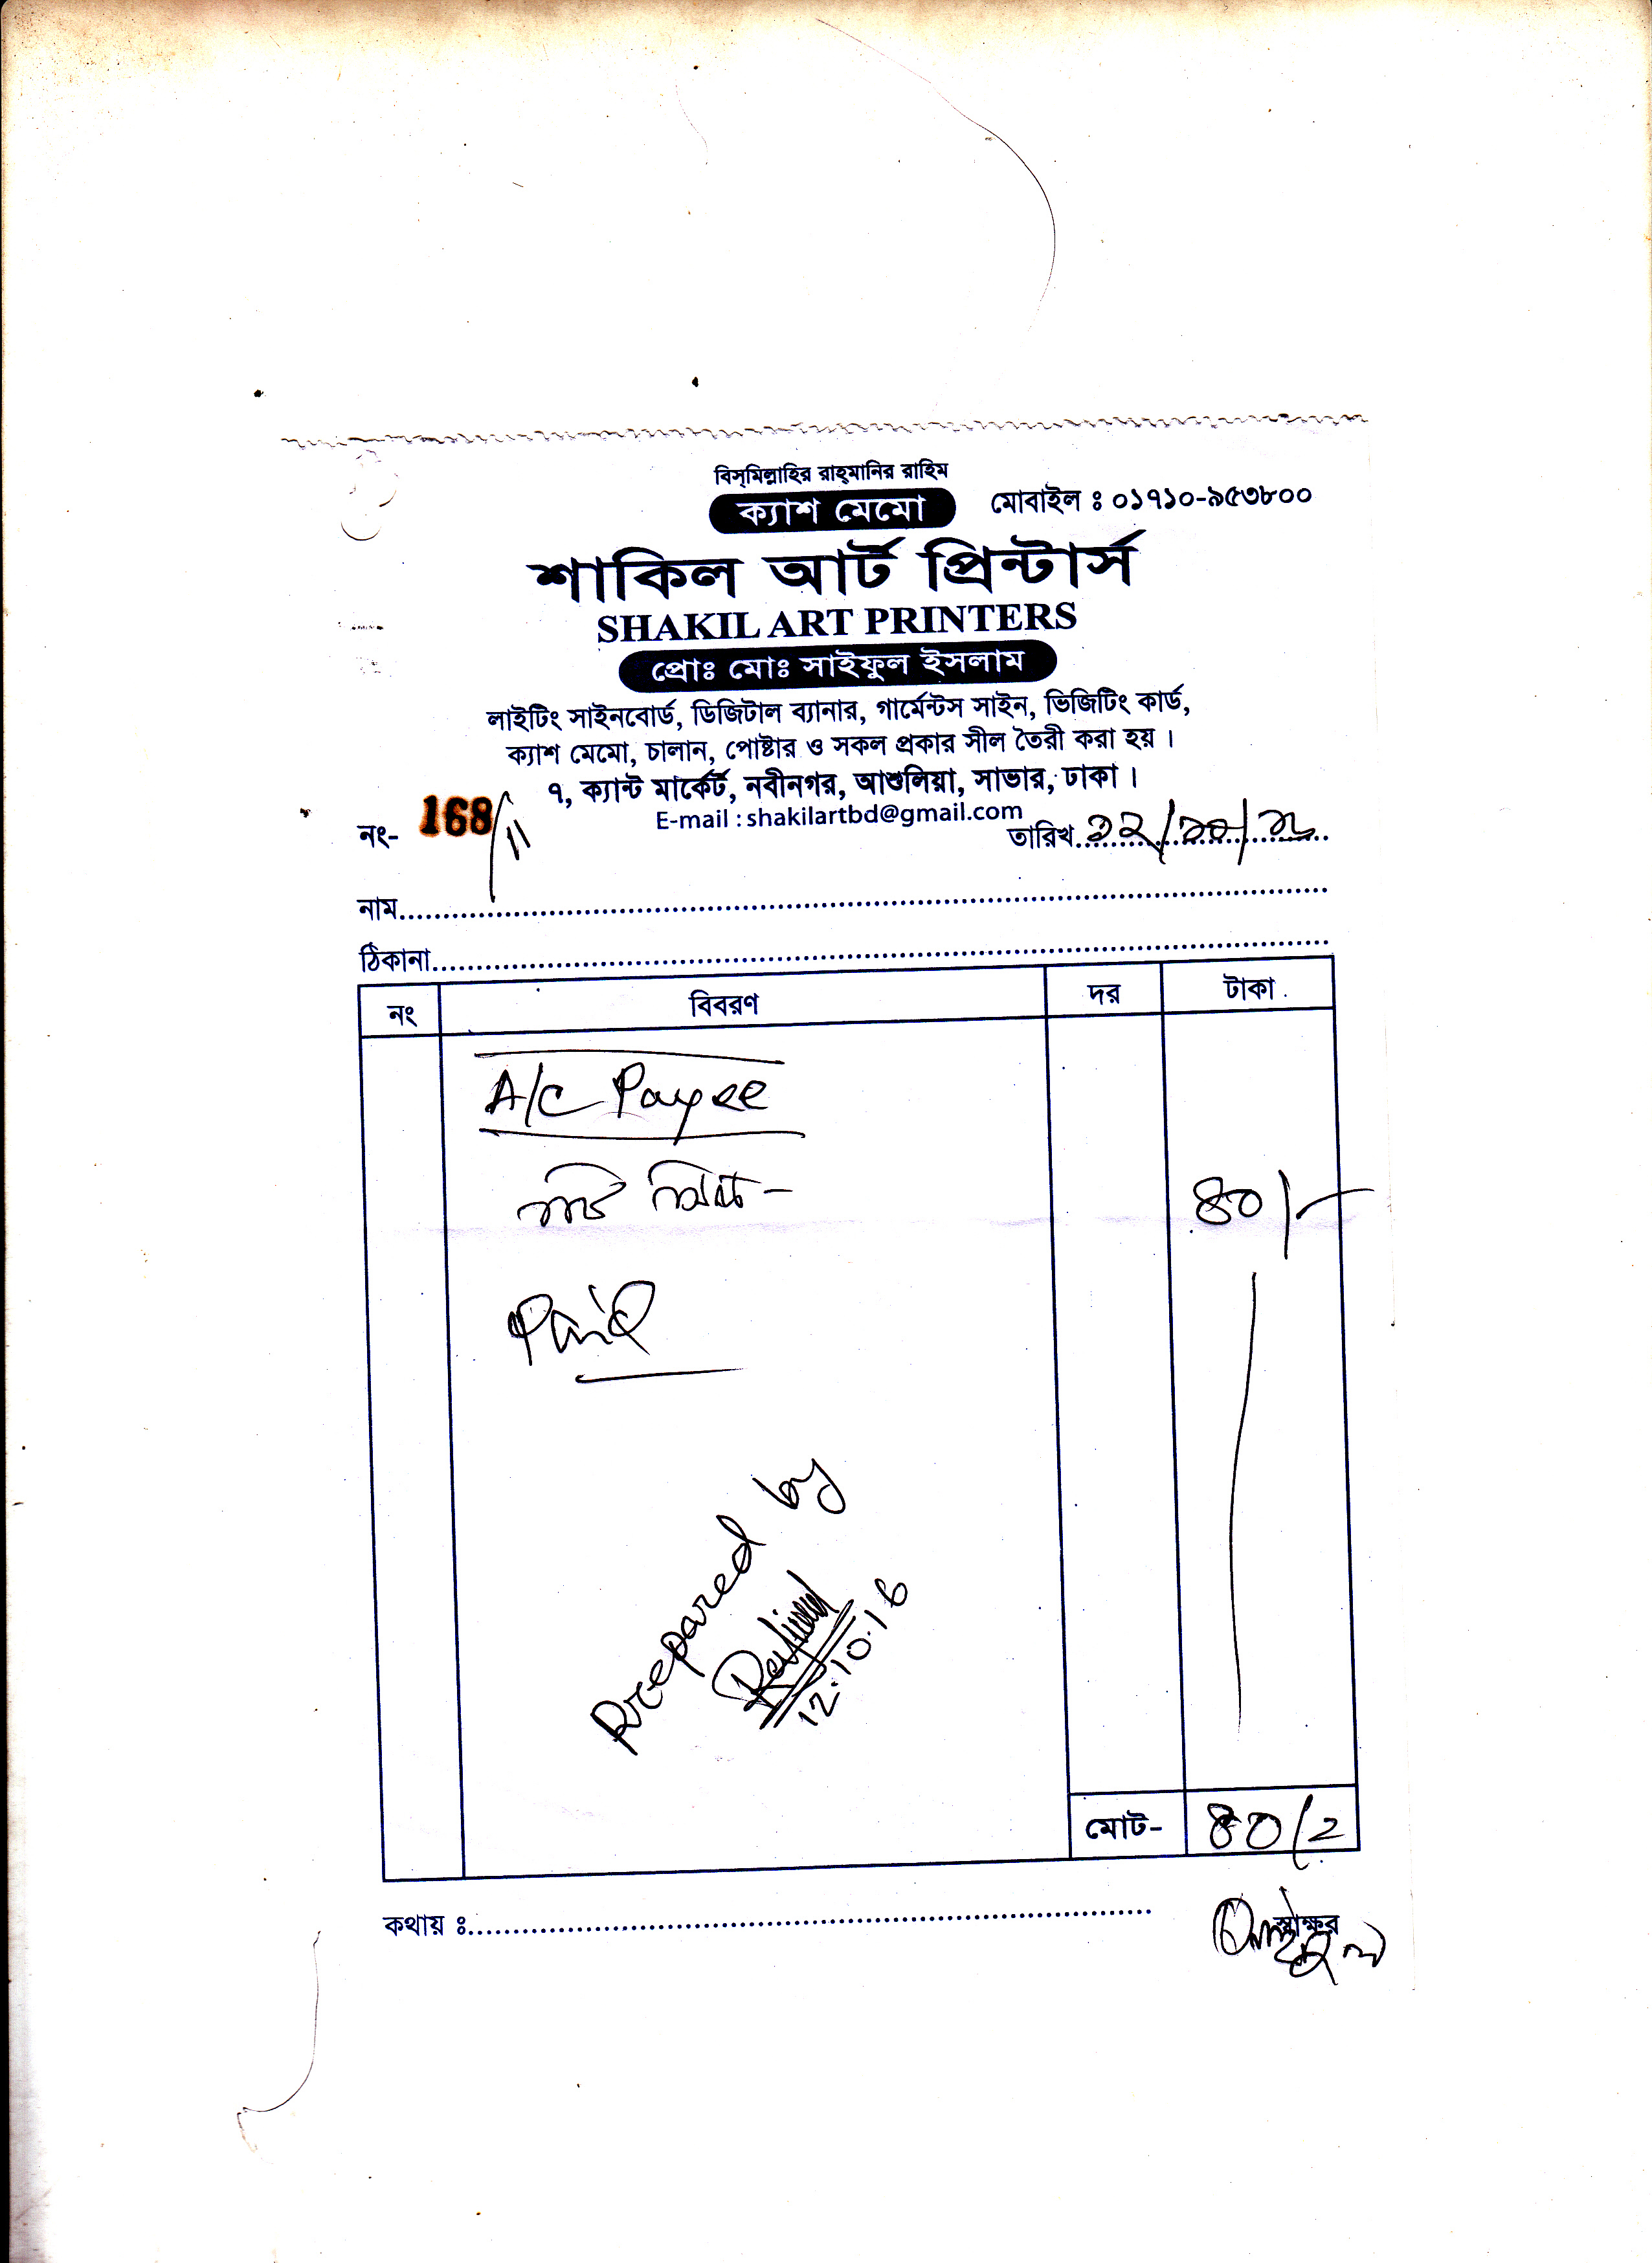 বিস্‌মিল্লাহির রাহ্‌মানির রাহিম
ক্যাশ মেমো
মোবাইল ঃ ০১৭১০-৯৫৩৮০০
শাকিল আর্ট প্রিন্টার্স
SHAKIL ART PRINTERS
প্রোঃ মোঃ সাইফুল ইসলাম
লাইটিং সাইনবোর্ড, ডিজিটাল ব্যানার, গার্মেন্টস সাইন, ভিজিটিং কার্ড,
ক্যাশ মেমো, চালান, পোষ্টার ও সকল প্রকার সীল তৈরী করা হয়।
৭, ক্যান্ট মার্কেট, নবীনগর, আশুলিয়া, সাভার, ঢাকা।
E-mail : shakilartbd@gmail.com
নং- 168/11
তারিখ ১২/১০/১৬
নাম
ঠিকানা
নং বিবরণ দর টাকা
A/C Payee
৪০/-
Paid
Prepared by
12.10.16
মোট- ৪০/=
কথায় ঃ
স্বাক্ষর